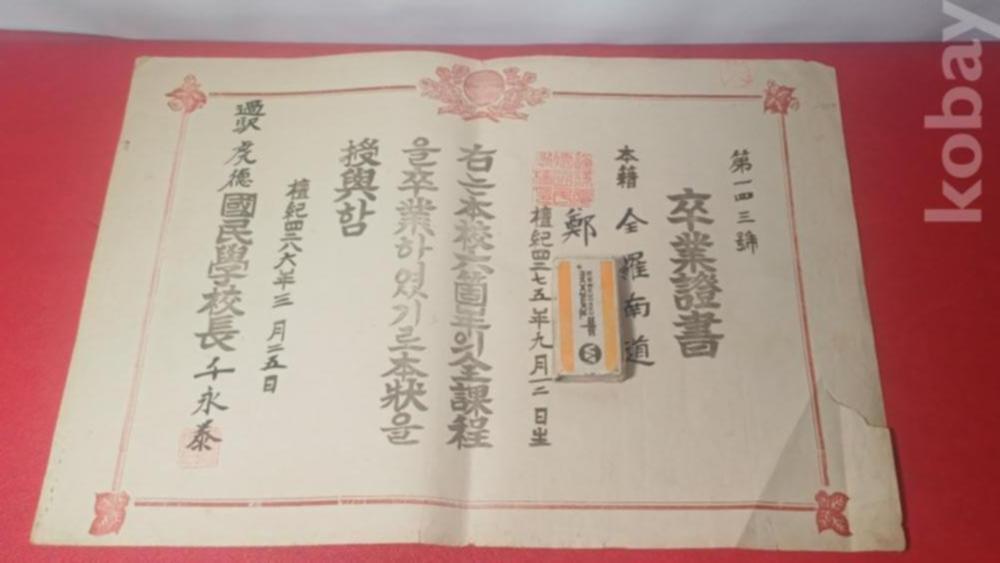 第一四三號
卒業證書
本籍 全羅南道
鄭
檀紀四二七五年九月一二日生
右는本校六箇年의全課程
을卒業하였기르本狀을
授與함
檀紀四二八六年三月二五日
虎德國民學校長 千永泰
kobay